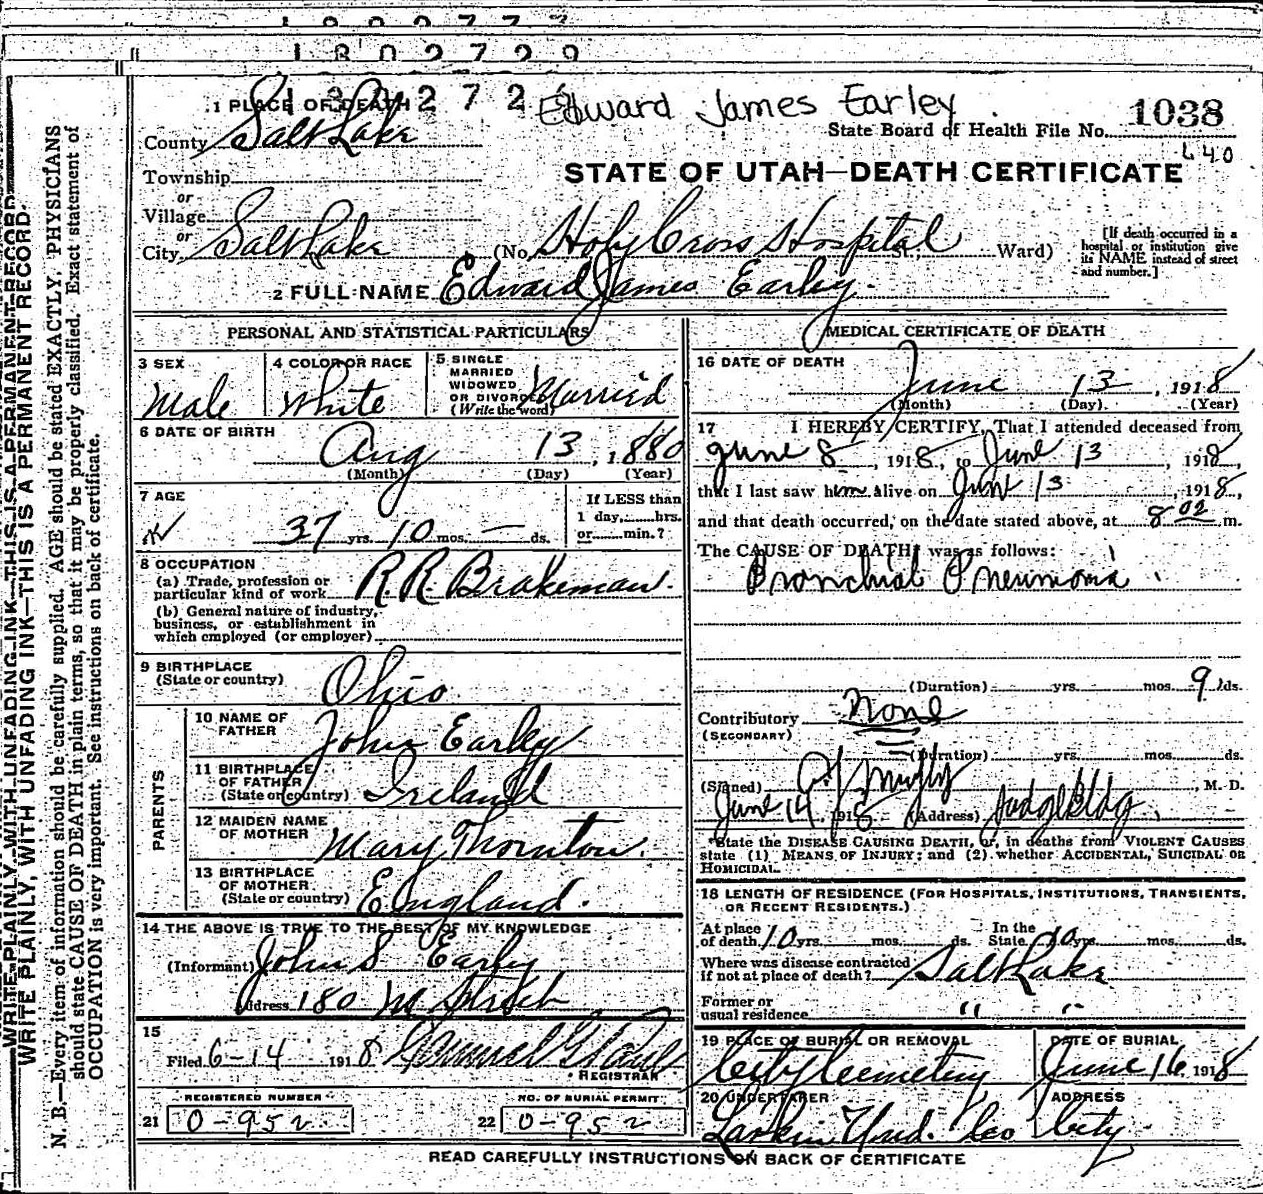 1802729
Edward James Earley
1 PLACE OF DEATH
State Board of Health File No. 1038
640
County Salt Lake
STATE OF UTAH—DEATH CERTIFICATE
Township
or
Village
or
City Salt Lake (No. Holy Cross Hospital St.; Ward)
[If death occurred in a
hospital or institution give
its NAME instead of street
and number.]
2 FULL NAME Edward James Earley.
PERSONAL AND STATISTICAL PARTICULARS
3 SEX Male
4 COLOR OR RACE White
5 SINGLE
MARRIED
WIDOWED
OR DIVORCED
(Write the word) Married
6 DATE OF BIRTH
Aug 13, 1880
(Month) (Day) (Year)
7 AGE
37 yrs. 10 mos. — ds.
If LESS than
1 day, hrs.
or min.?
8 OCCUPATION
(a) Trade, profession or
particular kind of work R.R. Brakeman.
(b) General nature of industry,
business, or establishment in
which employed (or employer)
9 BIRTHPLACE
(State or country) Ohio
PARENTS
10 NAME OF
FATHER John Earley
11 BIRTHPLACE
OF FATHER
(State or country) Ireland
12 MAIDEN NAME
OF MOTHER Mary Thornton.
13 BIRTHPLACE
OF MOTHER
(State or country) England.
14 THE ABOVE IS TRUE TO THE BEST OF MY KNOWLEDGE
(Informant) John S Earley
Address 180 M Street
15
Filed 6-14 1918
REGISTRAR
REGISTERED NUMBER
21 0-952
NO. OF BURIAL PERMIT
22 0-952
MEDICAL CERTIFICATE OF DEATH
16 DATE OF DEATH
June 13, 1918
(Month) (Day). (Year)
17 I HEREBY CERTIFY, That I attended deceased from
June 8, 1918, to June 13, 1918,
that I last saw him alive on June 13, 1918,
and that death occurred, on the date stated above, at 8 02 m.
The CAUSE OF DEATH* was as follows:
Bronchial Pneumonia.
(Duration) yrs. mos. 9 ds.
Contributory None
(SECONDARY)
(Duration) yrs. mos. ds.
(Signed) , M. D.
June 14, 1918 (Address) Judge Bldg.
*State the DISEASE CAUSING DEATH, or, in deaths from VIOLENT CAUSES
state (1) MEANS OF INJURY; and (2) whether ACCIDENTAL, SUICIDAL OR
HOMICIDAL.
18 LENGTH OF RESIDENCE (FOR HOSPITALS, INSTITUTIONS, TRANSIENTS,
OR RECENT RESIDENTS.)
At place
of death 10 yrs. mos. ds. In the
State 10 yrs. mos. ds.
Where was disease contracted
if not at place of death? Salt Lake
Former or
usual residence " "
19 PLACE OF BURIAL OR REMOVAL
City Cemetery
DATE OF BURIAL
June 16, 1918
20 UNDERTAKER
Larkin Und. Co
ADDRESS
City
READ CAREFULLY INSTRUCTIONS ON BACK OF CERTIFICATE
WRITE PLAINLY, WITH UNFADING INK—THIS IS A PERMANENT RECORD.
N. B.—Every item of information should be carefully supplied. AGE should be stated EXACTLY. PHYSICIANS
should state CAUSE OF DEATH in plain terms, so that it may be properly classified. Exact statement of
OCCUPATION is very important. See instructions on back of certificate.